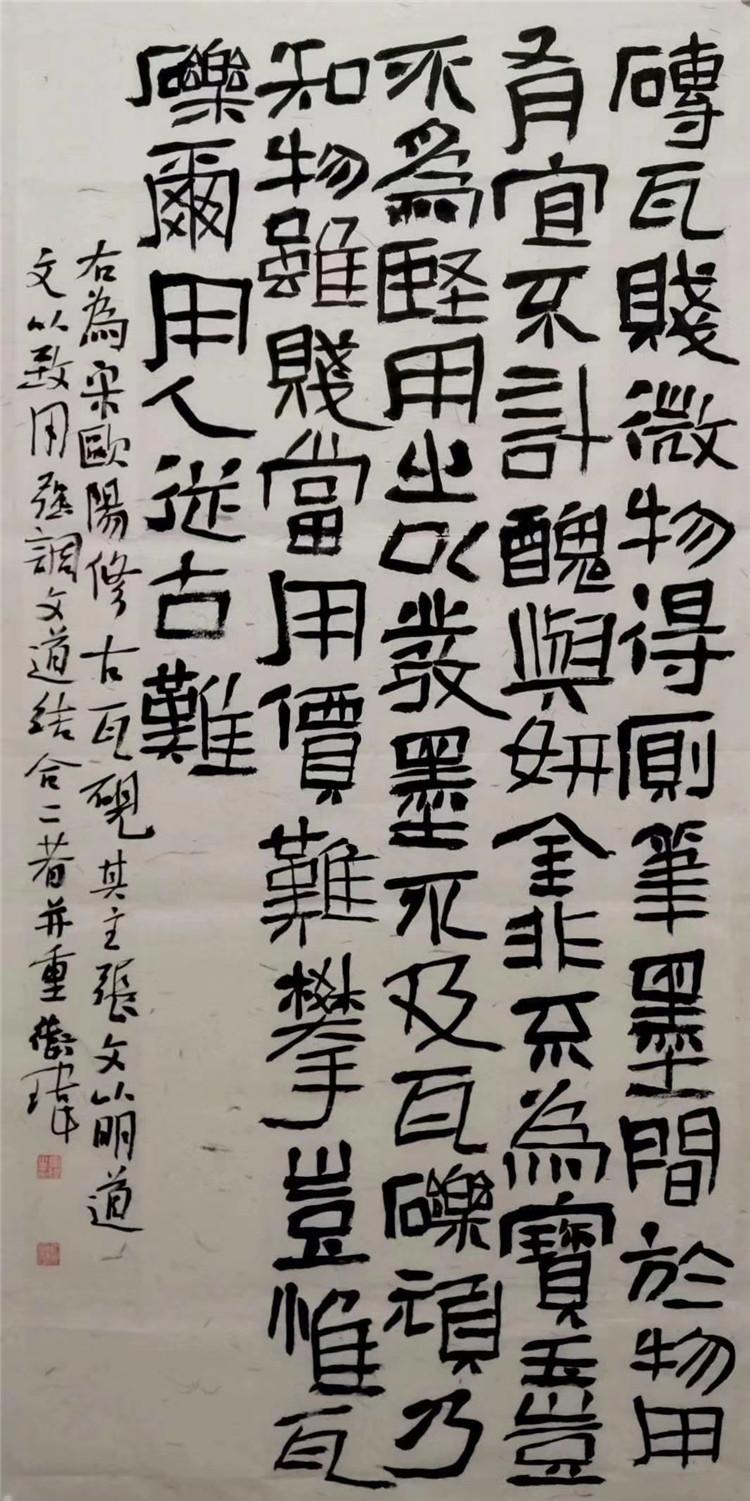 磚瓦賤微物得廁筆墨間於物用
有宜不計醜與妍金非不為寶玉豈
不為堅用之以發墨不及瓦礫頑乃
知物雖賤當用價難攀豈惟瓦
礫爾用人從古難
右為宋歐陽修古瓦硯其主張文以明道
文以致用強調文道結合二者并重瑋